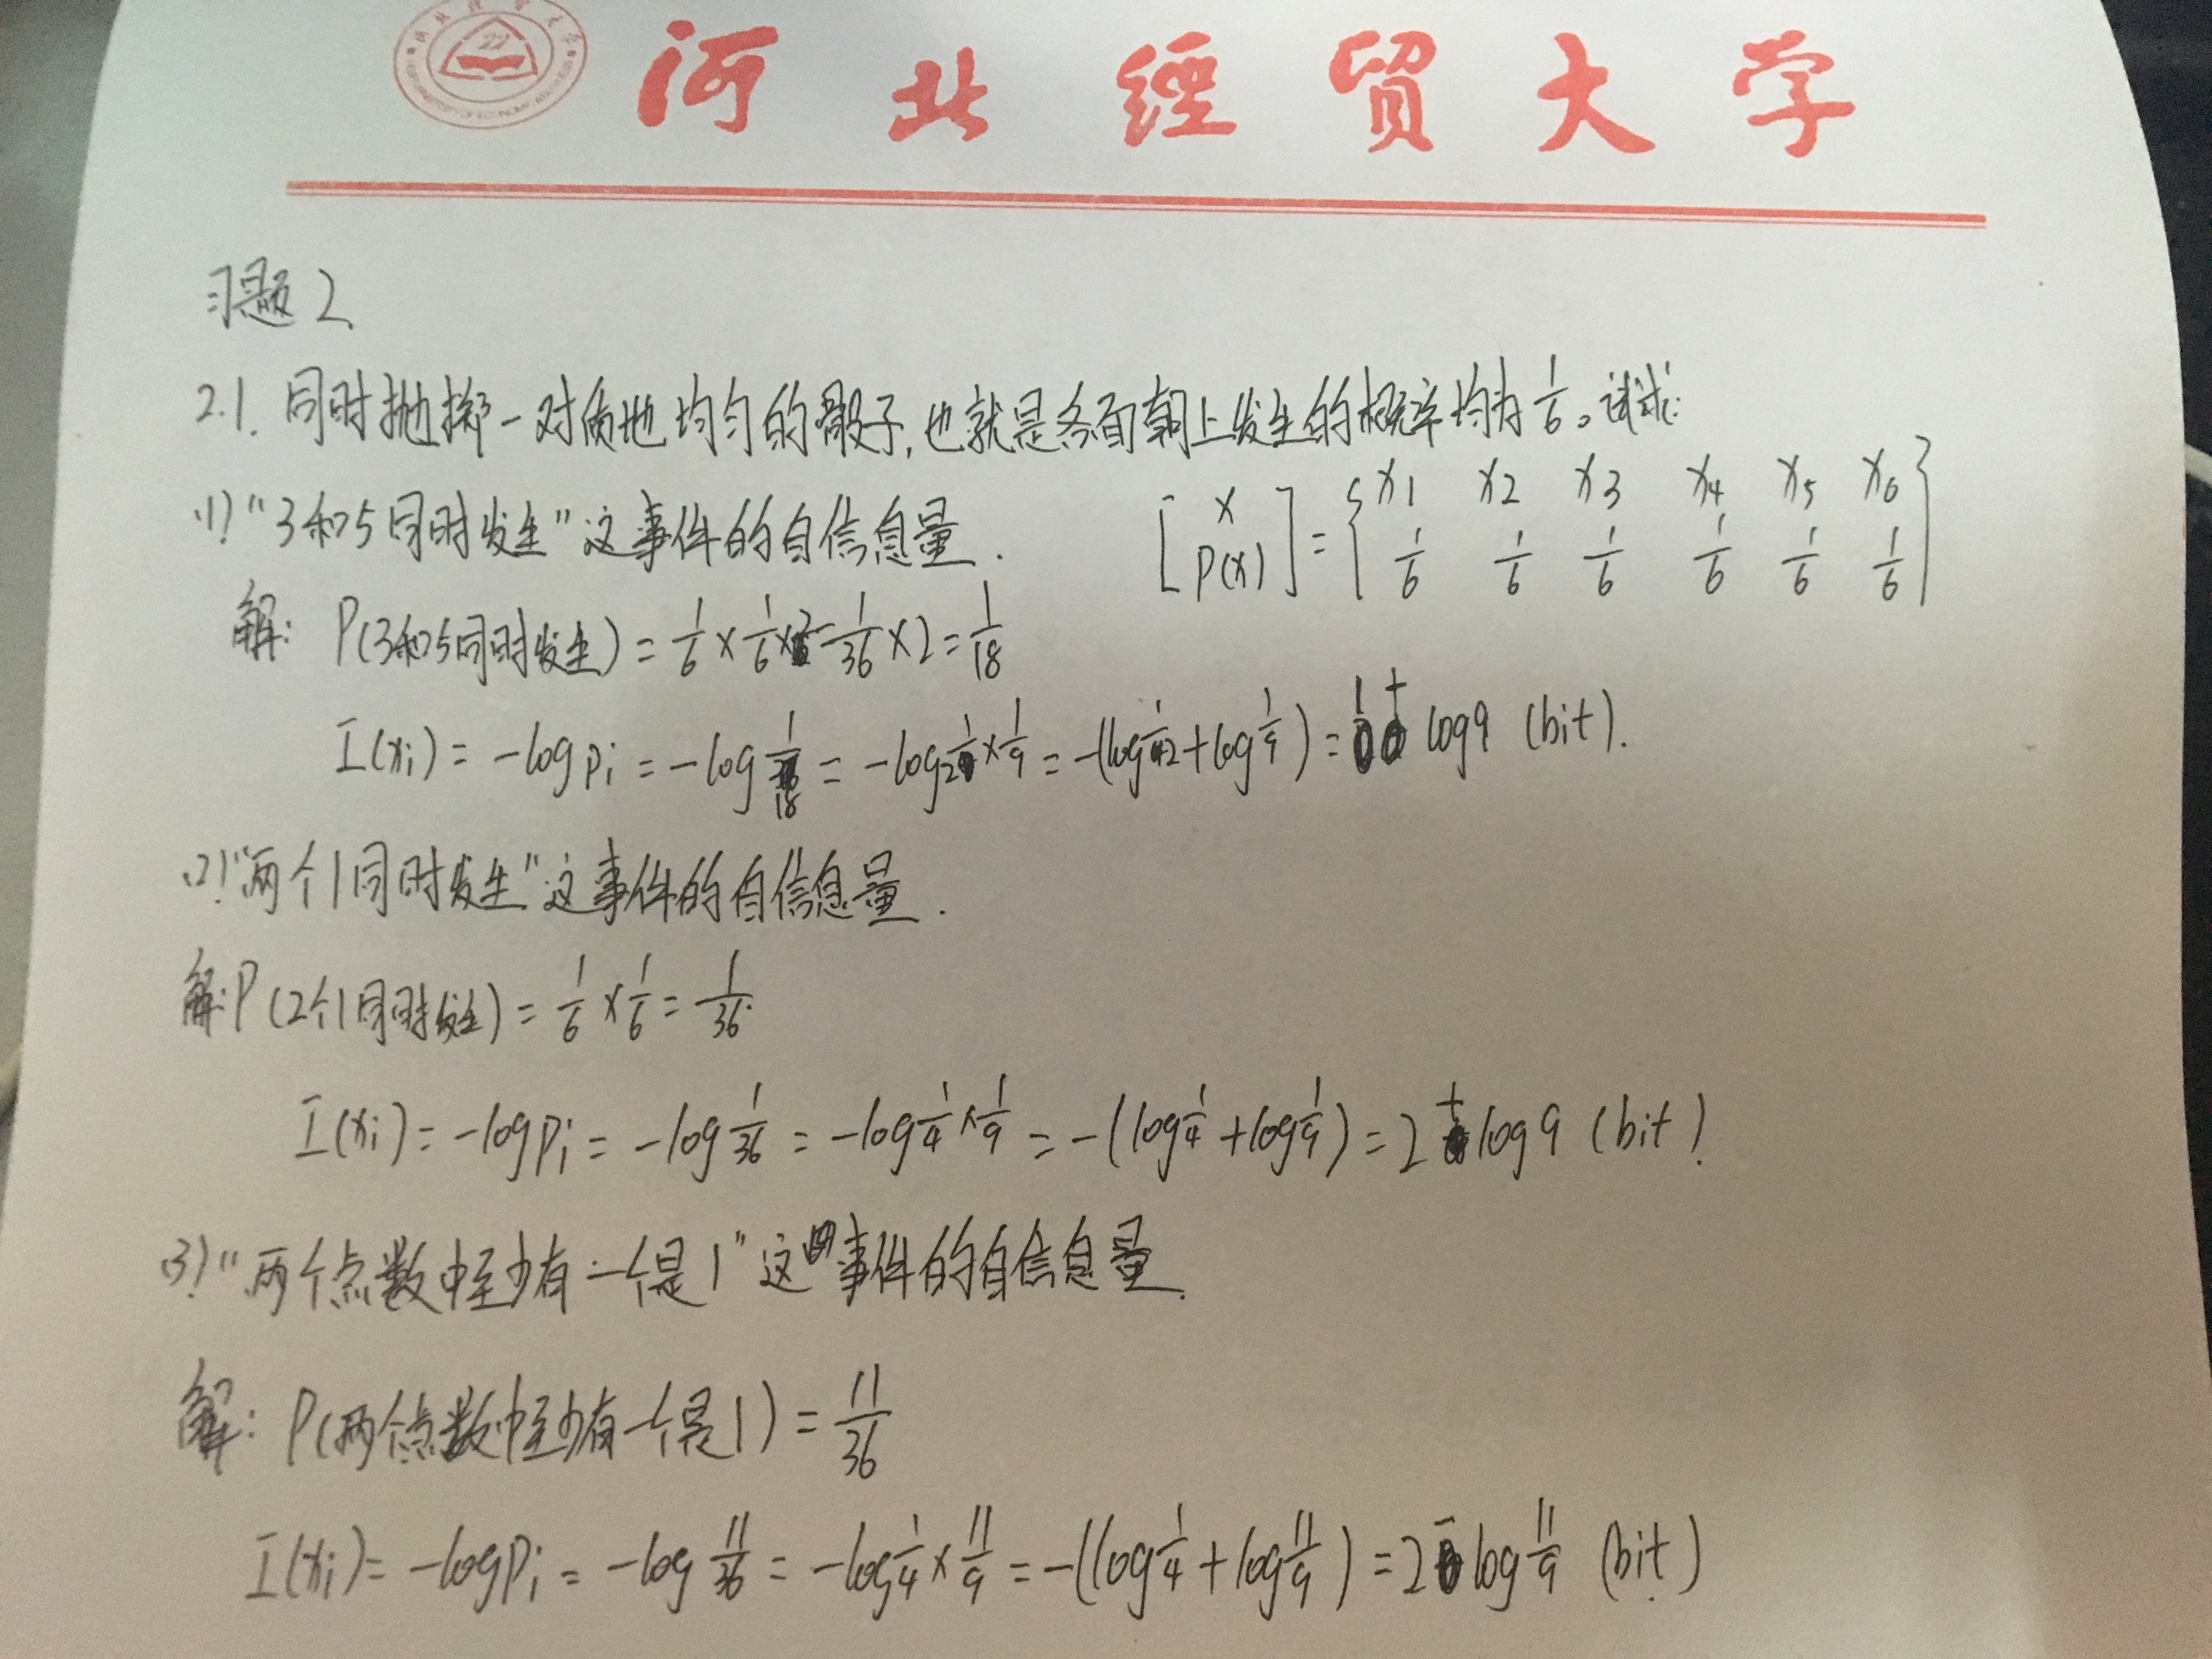 河北經貿大学
习题2
2.1. 同时抛掷一对质地均匀的骰子,也就是各面朝上发生的概率均为1/6。试求:
(1) "3和5同时发生"这事件的自信息量.
[X P(x)] = {x1 x2 x3 x4 x5 x6
1/6 1/6 1/6 1/6 1/6 1/6}
解: P(3和5同时发生) = 1/6 × 1/6 × 2 = 1/36 × 2 = 1/18
I(xi) = -log pi = -log 1/18 = -log 1/2 × 1/9 = -(log 1/2 + log 1/9) = 1 + log9 (bit).
(2) "两个1同时发生"这事件的自信息量.
解: P(2个1同时发生) = 1/6 × 1/6 = 1/36.
I(xi) = -log pi = -log 1/36 = -log 1/4 × 1/9 = -(log 1/4 + log 1/9) = 2 + log9 (bit)
(3) "两个点数中至少有一个是1"这事件的自信息量.
解: P(两个点数中至少有一个是1) = 11/36
I(xi) = -log pi = -log 11/36 = -log 1/4 × 11/9 = -(log 1/4 + log 11/9) = 2 - log 11/9 (bit)